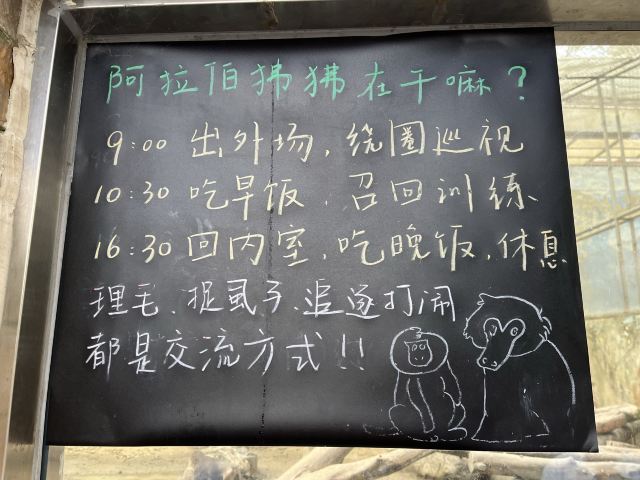 阿拉伯狒狒在干嘛？
9:00 出外场，绕圈巡视
10:30 吃早饭、召回训练
16:30 回内室，吃晚饭，休息
理毛、捉虱子、追逐打闹
都是交流方式!!